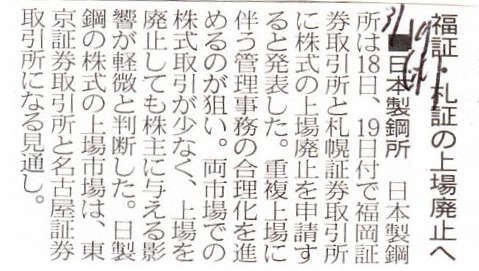 福証・札証の上場廃止へ
■日本製鋼所　日本製鋼
所は18日、19日付で福岡証
券取引所と札幌証券取引所
に株式の上場廃止を申請す
ると発表した。重複上場に
伴う管理事務の合理化を進
めるのが狙い。両市場での
株式取引が少なく、上場を
廃止しても株主に与える影
響が軽微と判断した。日製
鋼の株式の上場市場は、東
京証券取引所と名古屋証券
取引所になる見通し。